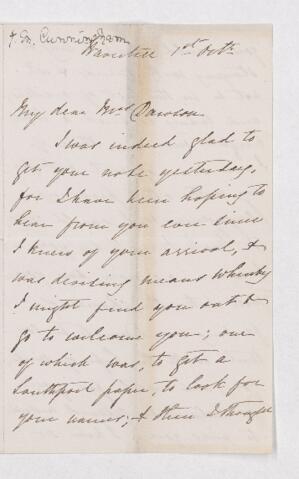 Cunningham
1st Octr
My dear Mrs Dawson
I was indeed glad to
get your note yesterday,
for I have been hoping to
hear from you ever since
I knew of your arrival, &
was devising means whereby
I might find you out &
go to welcome you; one
of which was, to get a
Southport paper, to look for
your names; & then I thought